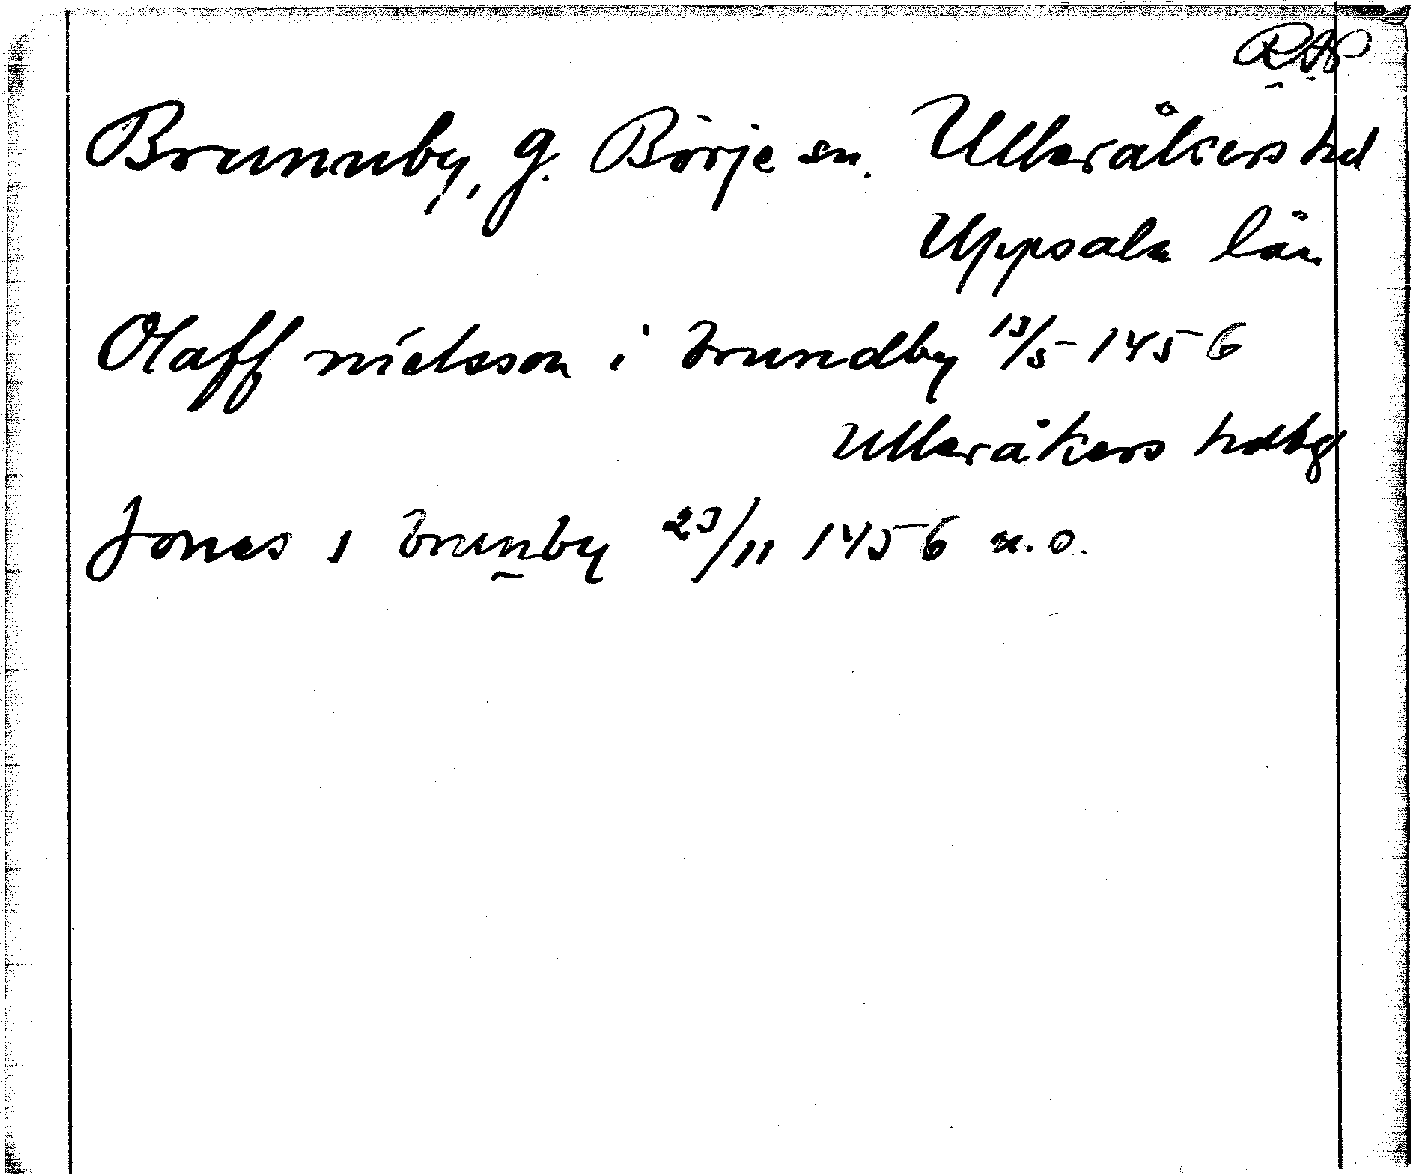 RAP
Brunnby, g. Börje sn. Ulleråkers hd
Uppsala län
Olaff nielsson i brundby 13/5 1456
Ulleråkers hdbg
Jones i brunby 23/11 1456 n.o.